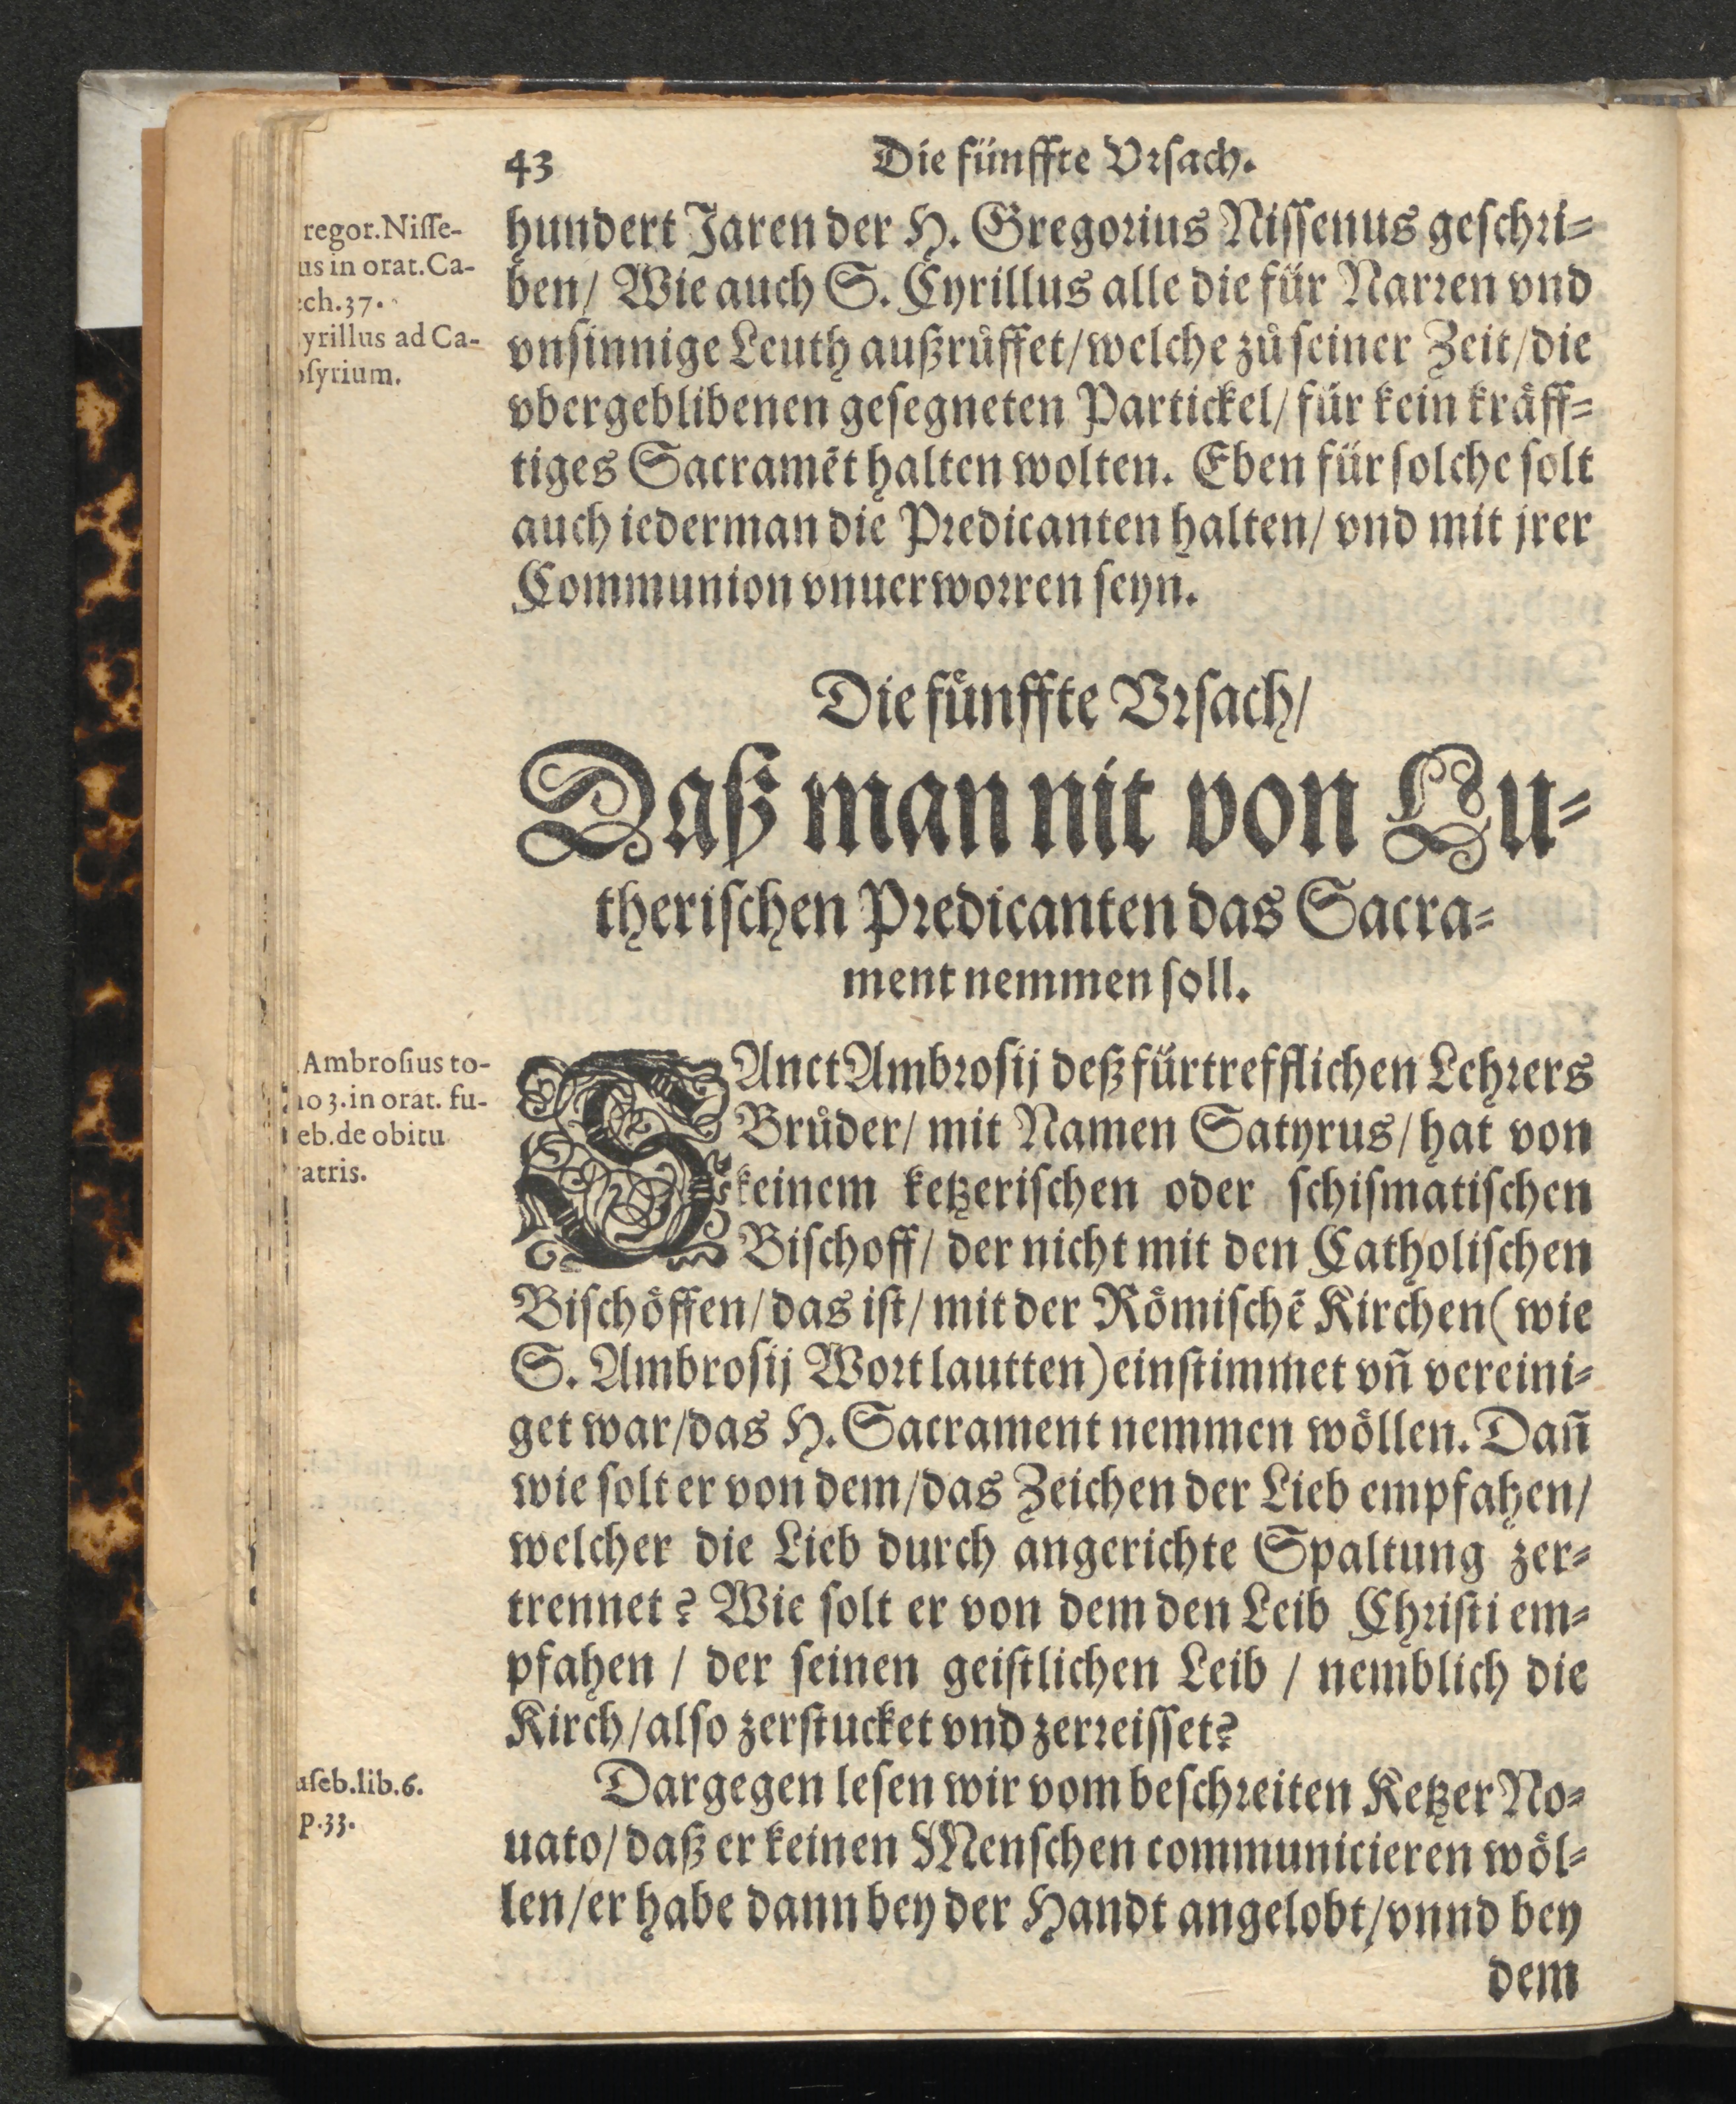 43 Die fünffte Vrsach.
regor.Nisse-
us in orat.Ca-
ch.37.
yrillus ad Ca-
syrium.
hundert Jaren der H. Gregorius Nissenus geschri-
ben/ Wie auch S. Cyrillus alle die für Narren vnd
vnsinnige Leuth außrůffet/welche zů seiner Zeit/die
vbergeblibenen gesegneten Partickel/ für kein kräff-
tiges Sacramēt halten wolten. Eben für solche solt
auch iederman die Predicanten halten/ vnd mit jrer
Communion vnuerworren seyn.
Die fünffte Vrsach/
Daß man nit von Lu-
therischen Predicanten das Sacra-
ment nemmen soll.
Ambrosius to-
o 3.in orat. fu-
eb.de obitu
atris.
SAnct Ambrosij deß fürtrefflichen Lehrers
Brůder/ mit Namen Satyrus/ hat von
keinem ketzerischen oder schismatischen
Bischoff/ der nicht mit den Catholischen
Bischöffen/das ist/ mit der Römischē Kirchen (wie
S. Ambrosij Wort lautten) einstimmet vñ vereini-
get war/das H. Sacrament nemmen wöllen. Dañ
wie solt er von dem/das Zeichen der Lieb empfahen/
welcher die Lieb durch angerichte Spaltung zer-
trennet? Wie solt er von dem den Leib Christi em-
pfahen / der seinen geistlichen Leib / nemblich die
Kirch/also zerstucket vnd zerreisset?
useb.lib.6.
p.33.
Dargegen lesen wir vom beschreiten Ketzer No-
uato/ daß er keinen Menschen communicieren wöl-
len/er habe dann bey der Handt angelobt/vnnd bey
dem